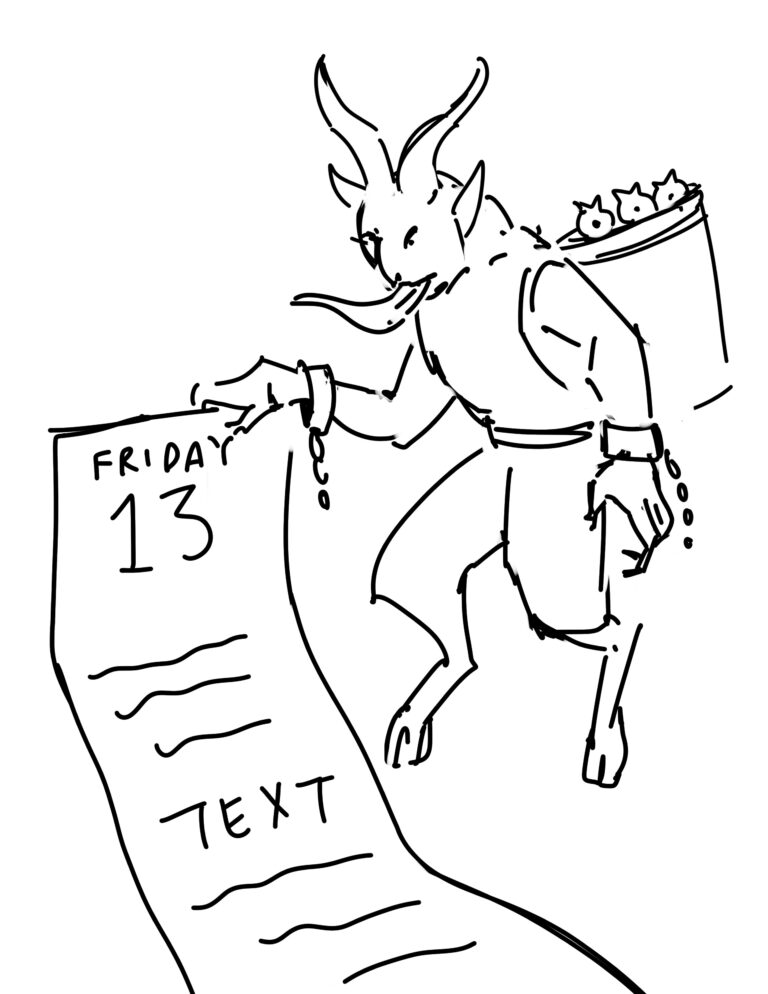 FRIDAY
13
TEXT